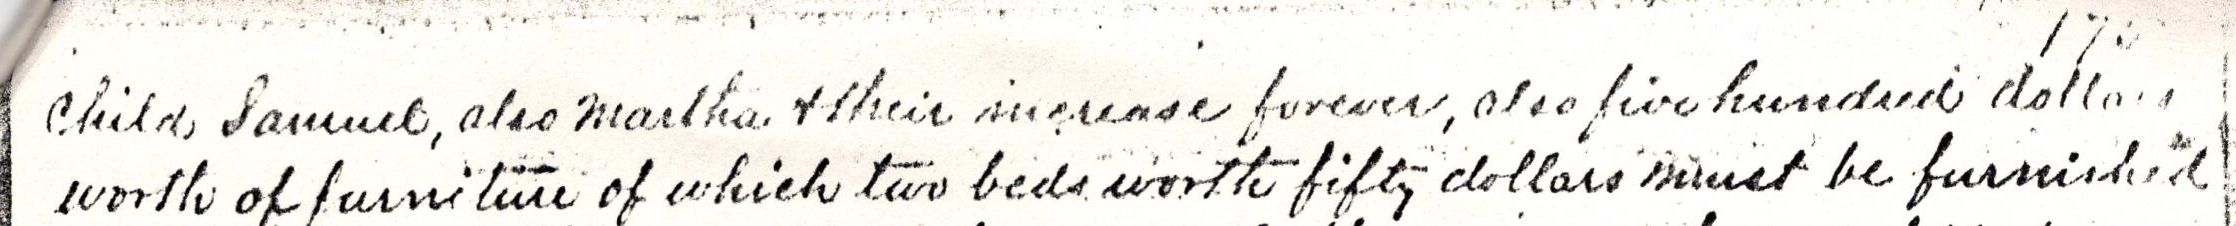 Child, Samuel, also Martha & their increase forever, also five hundred dollars
worth of furniture of which two beds worth fifty dollars must be furnished